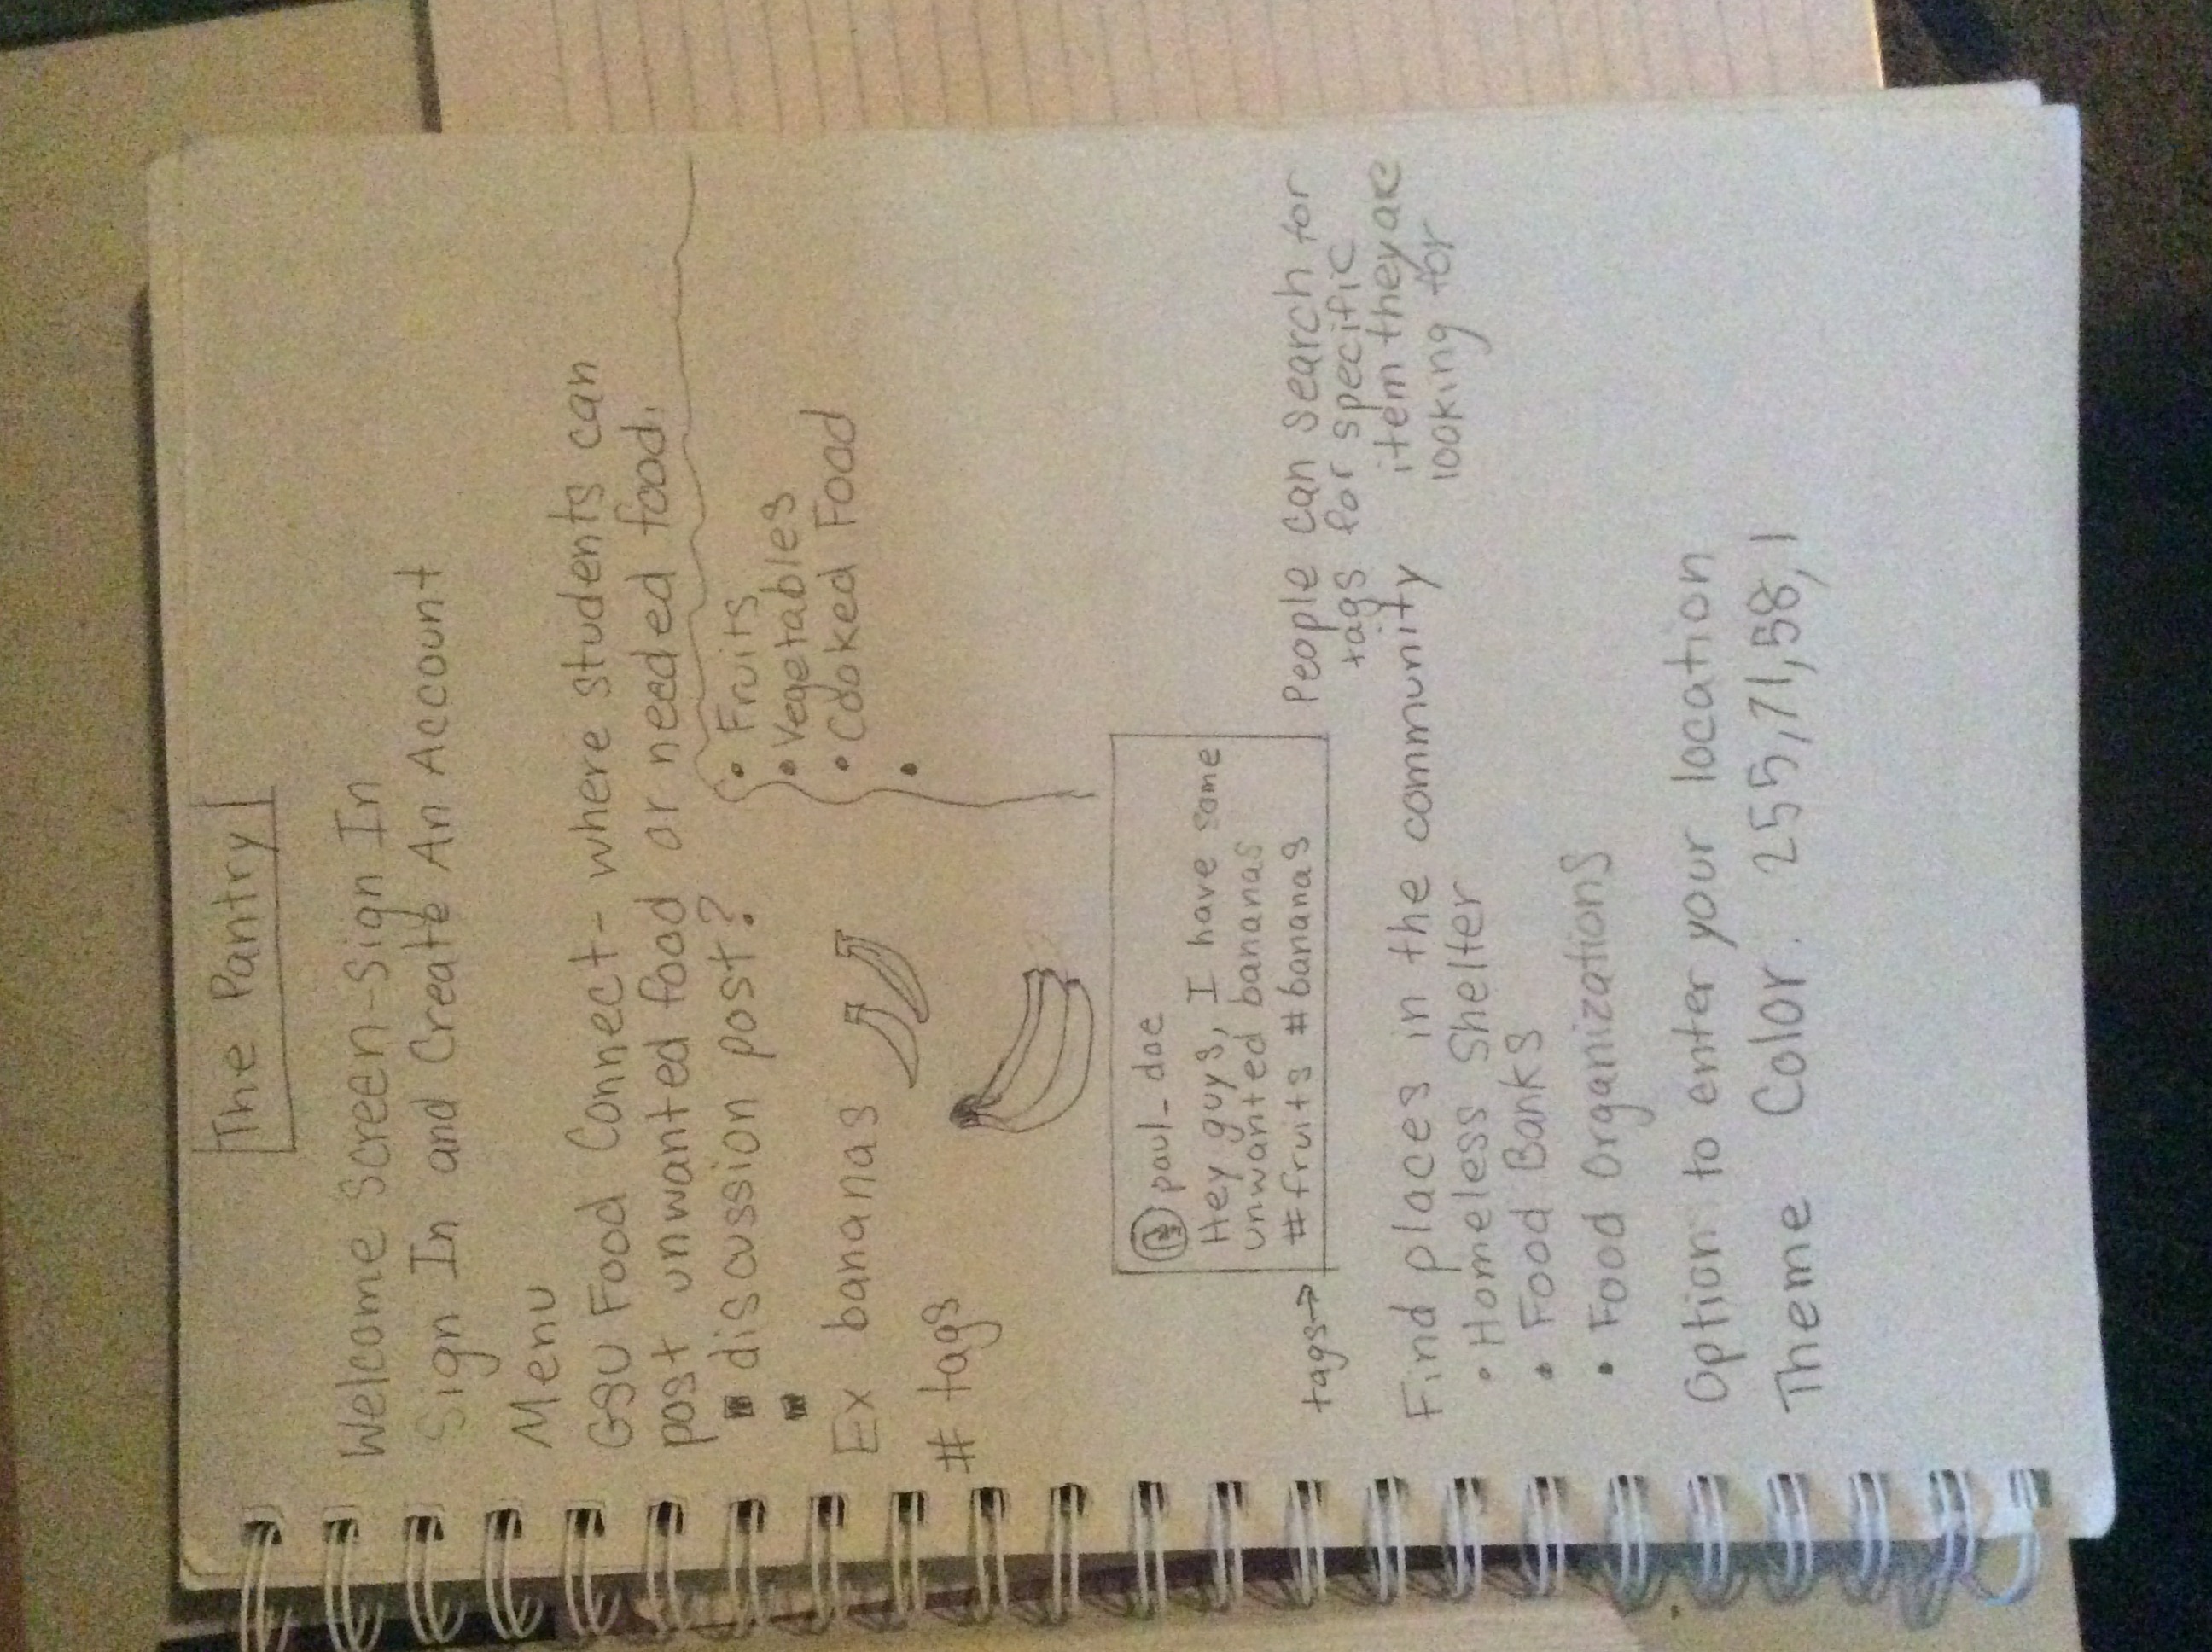 The Pantry
Welcome Screen-Sign In
Sign In and Create An Account
Menu
GSU Food Connect- where students can
post unwanted food or needed food.
discussion post?
• Fruits
• Vegetables
• Cooked Food
Ex bananas
# tags
paul_doe
Hey guys, I have some
unwanted bananas
#fruits #bananas
tags→
People can search for
tags for specific
item they are
looking for
Find places in the community
• Homeless Shelter
• Food Banks
• Food Organizations
Option to enter your location
Theme Color. 255,71,58,1